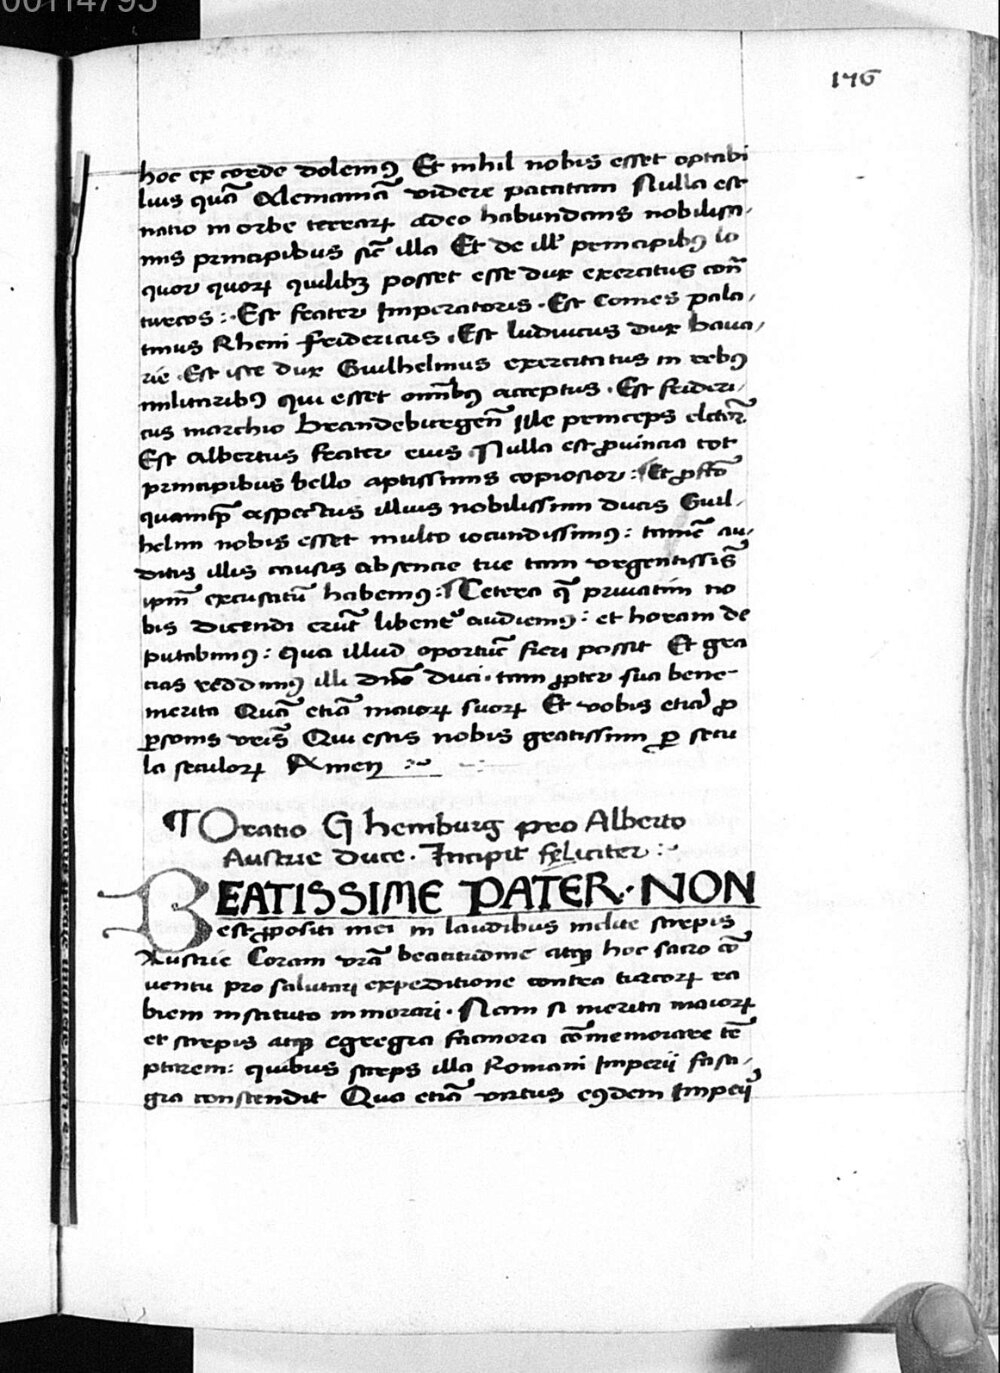 00114795
176
hoc ex corde dolemꝰ Et nihil nobis esset optabi
lius quā Alemaniā videre pacatam Nulla est
natio in orbe terrarꝝ adeo habundans nobilissi-
mis principibus sic̄ illa Et de ill' principibꝰ lo
quor quorꝝ quilibꝫ posset esse dux exercitus con̄
turcos : · Est frater Imperatoris · Est Comes pala-
tinus Rheni Fridericus · Est ludvicus dux bava-
rie · Est iste dux Guilhelmus exercitatus in rebꝰ
militaribꝰ qui esset om̄ibꝰ acceptus · Est frideri-
cus marchio brandeburgen̄ Ille princeps elctor̄
Est albertus frater eius Nulla est ꝓuincia tot
principibus bello aptissimis copiosior : Et ꝓfc̄o
quamꝙ̄ aspectus illius nobilissimi ducis Guil-
helmi nobis esset multo iocundissimꝰ : tamē au-
ditis illis causis absencie tue tam vrgentissis̄
ipm̄ excusatū habemꝰ : Cetera q̄ priuatim no
bis dicendi erūt libent᷒ audiemꝰ : et horam de
putabimꝰ : Qua illud oportuē fieri possit Et gra
cias reddimꝰ illi dn̄o duci · tam ꝓpter sua bene-
merita Quā etiā maiorꝝ suorꝝ Et vobis etiā ꝓ
ꝑsonis vrīs Qui estis nobis gratissimi ꝑ secu
la seculorꝝ Amen :~
¶ Oratio G hemburg pro Alberto
Austrie duce · Incipit feliciter :~
BEATISSIME PATER · NON
est ꝓpositi mei in laudibus inclite stirpis
Austrie Coram vrā beatitudine atqꝫ hoc sacro cō
ventu pro salutari expeditione contra turcorꝝ ra
biem instituto inmorari · Nam si merita maiorꝝ
et stirpis atqꝫ egregia facinora cōmemorare tē
ptarem : quibus stirps illa Romani Imperii fasti-
gia conscendit Qua etiā virtus eꝰdem Impeīi